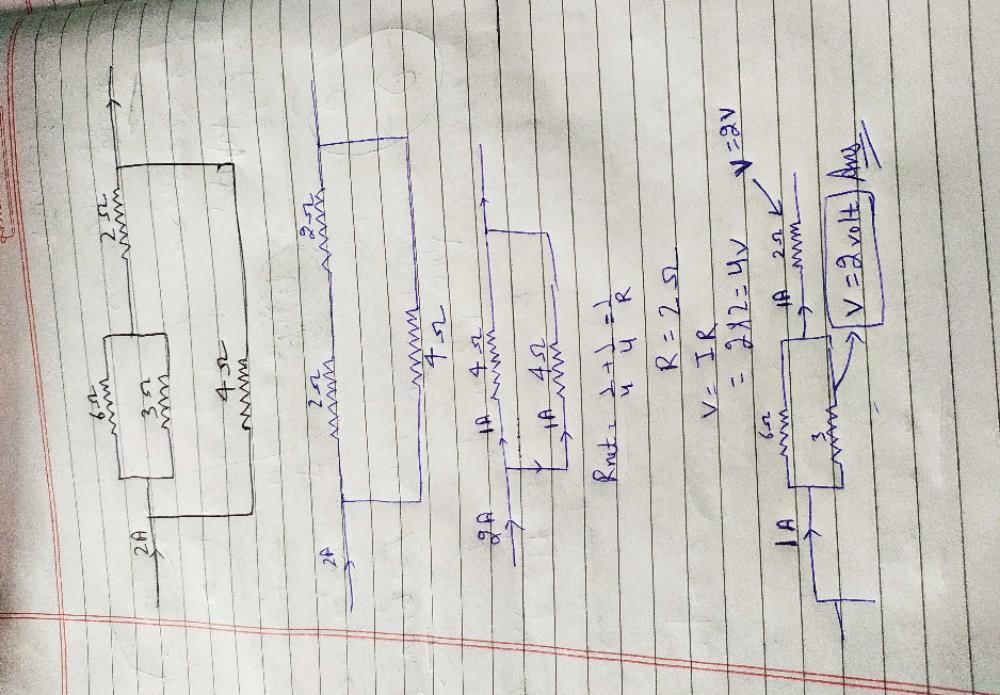 6Ω
3Ω
2Ω
4Ω
2A
2Ω
2Ω
4Ω
2A
2A
1A 4Ω
1A 4Ω
Rnet = 1/4 + 1/4 = 1/R
R = 2Ω
V = IR
= 2×2 = 4V
V = 2V
1A
6Ω
3
1A 2Ω
V = 2 volt Ans